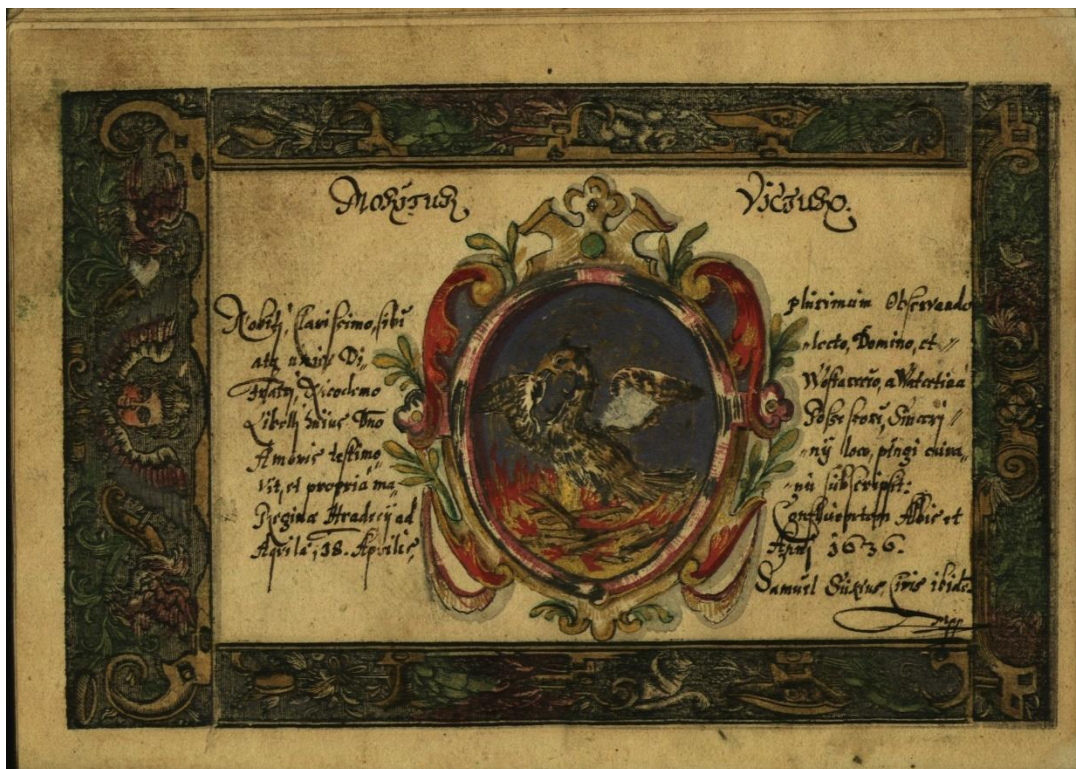 Moritur Victuro.
Nobili, Clarissimo, sibi plurimum Observando
atq unice Di- -lecto, Domino, et
Fratri, Nicodemo
Libelli huius Dno Possessori, Sinceri
Amoris testimo- -nij loco, pingi cura
vit, et propria ma- -nu subscripsit:
Regina Hradecij ad Confluentem Albis et
Aquilæ, 18. Aprilis, Anni 1636.
Samuel Civis ibidē
mpp